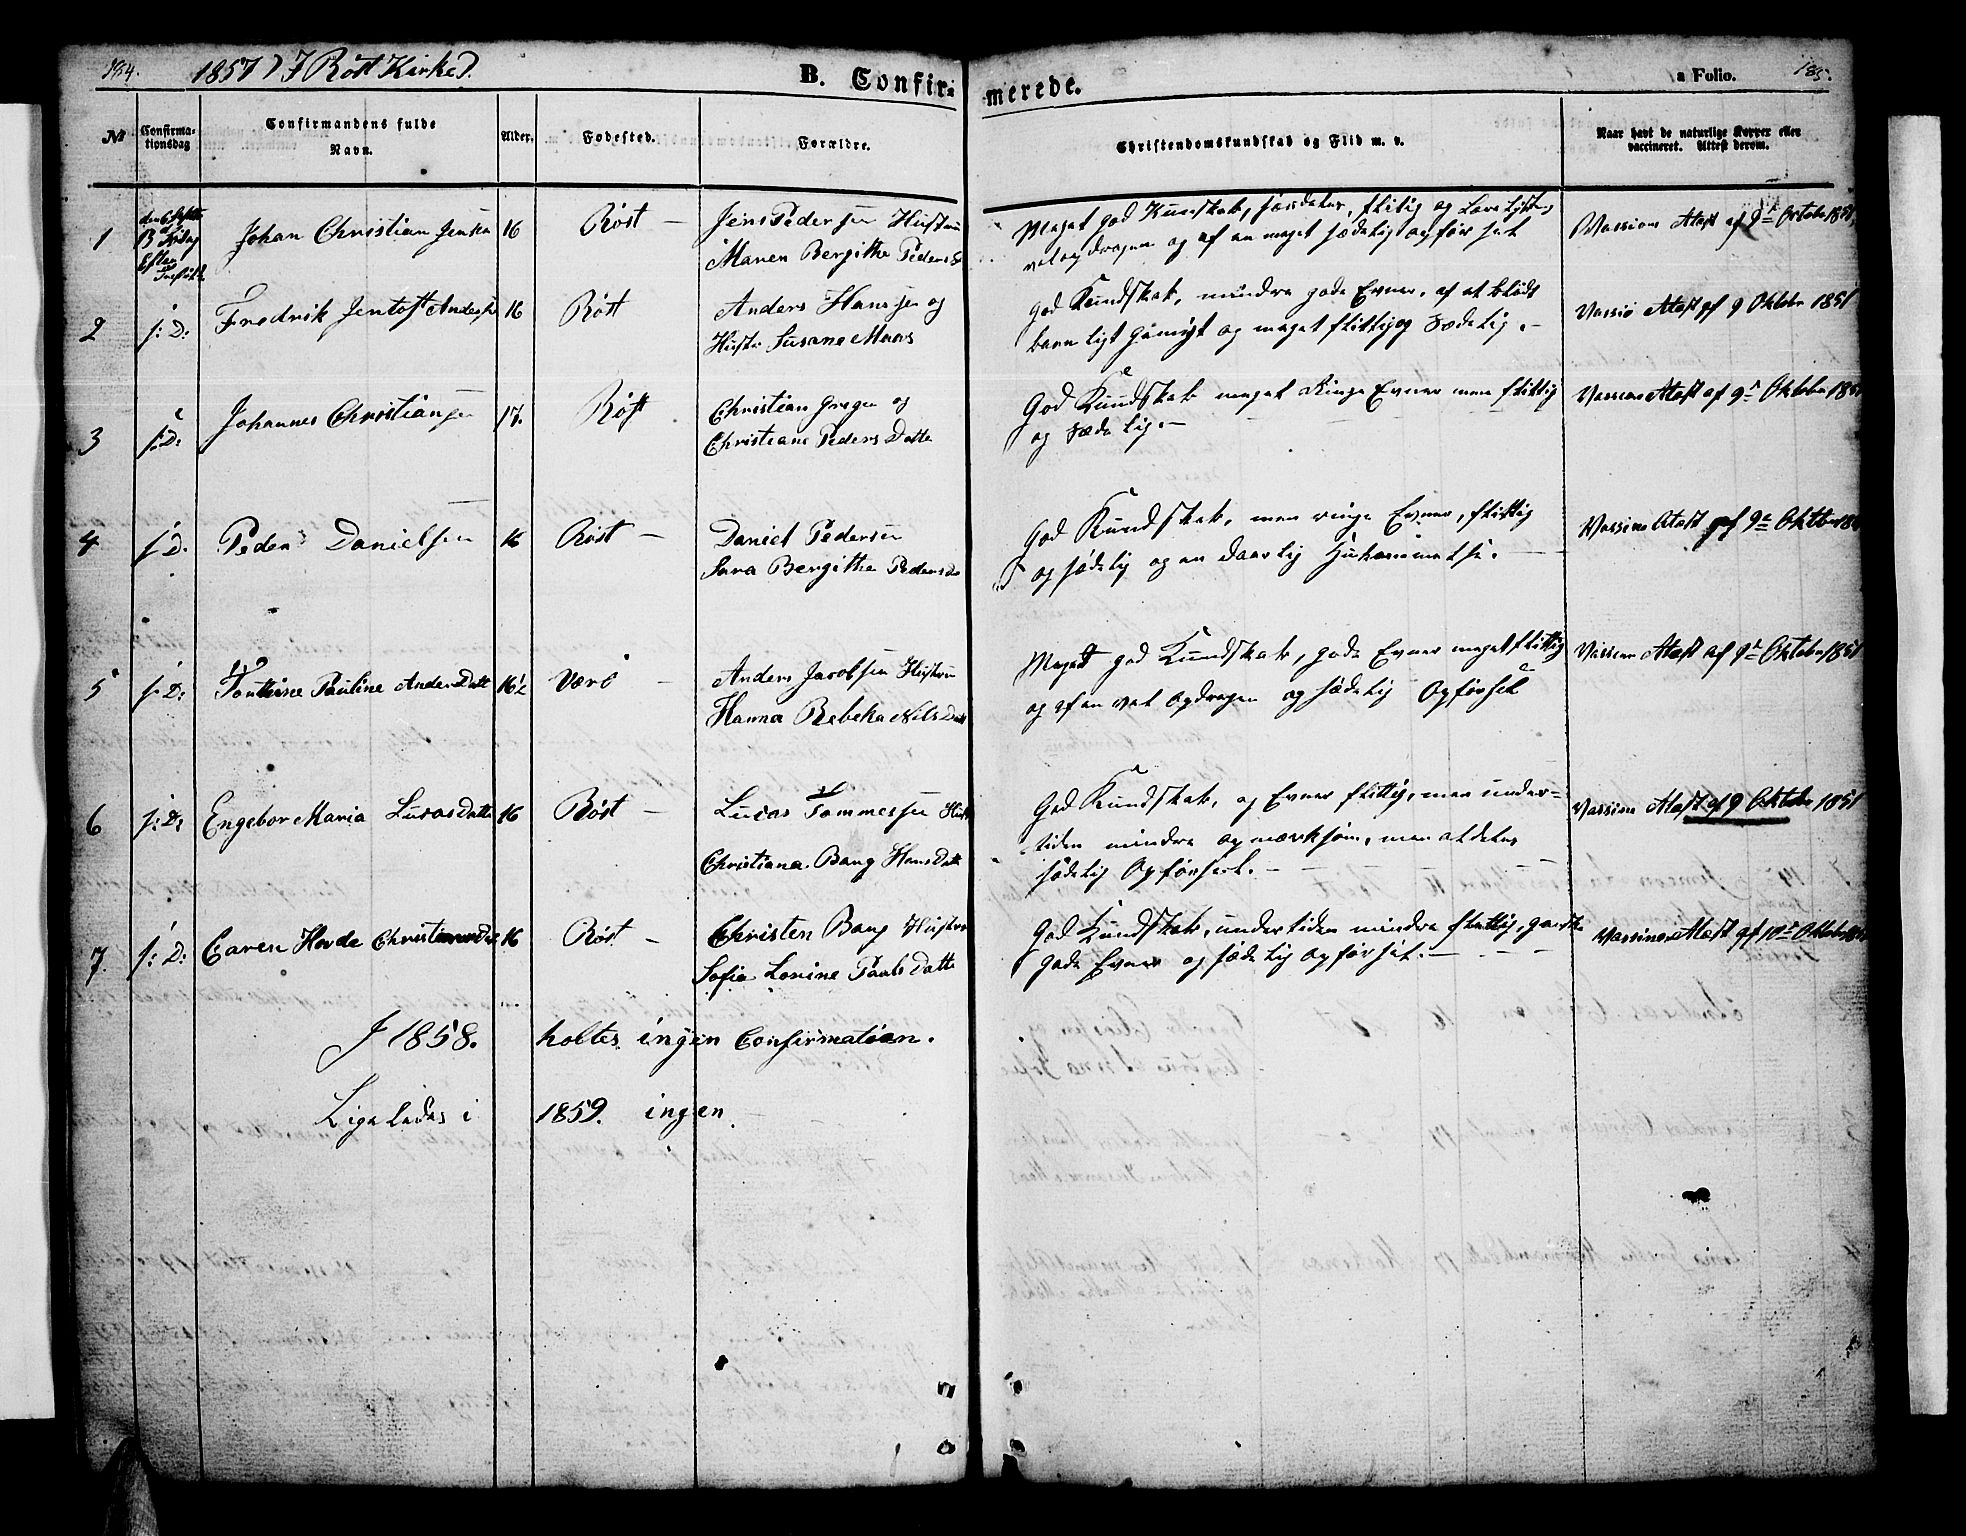 184.
1857 I Röst Kirke
B. Confirmerede.
a Folio.
185.
№
Confirmationsdag
Confirmandens fulde Navn.
Alder.
Fødested.
Forældre.
Christendomskundskab og Flid m. v.
Naar havt de naturlige Kopper eller vaccineret. Attest derom.
1
Johan Christian Jensen
16
Röst –
Jens Pedersen Hustru
Maren Bergithe Peders
Meget god Kundskab, flitig og
og af en meget sædelig opførsel
Attest af 9de October 1851
2
s: D:
Fredrik Jentoft Anders
16
Röst
Anders Hanssen og
Hustr Susane Maas
God Kundskab, mindre gode Evner, af et
og meget flittig og sædelig. –
Attest af 9 Oktobr 1851
3
s: D:
Johannes Christiansen
17.
Röst
Christian Greger og
Christiane Peders Datte
God Kundskab meget ringe Evner men flittig
og sædelig. –
Attest af 9de Oktobr 1851
4
s: D:
Peder Danielsen
16
Röst –
Daniel Pedersen
Sara Bergithe Peders D
God Kundskab, men ringe Evner, flittig
og sædelig og en daarlig
Attest af 9de Oktbr
5
s: D:
Pauline Anders Datt
16½
Værö –
Anders Jacobsen Hustru
Hanna Rebeka Nils Datt
Meget god Kundskab, gode Evner meget flittig
og af en vel opdragen og sædelig Opførsel
Attest af 9de Oktobr 1851
6
s: D:
Engebor Maria Lucas Datte
16
Röst –
Lucas Tommessen Hust
Christiana Bang Hans Datt
God Kundskab, og Evner flittig, men under-
tiden mindre opmærksom, men
sædelig Opførsel. –
Attest af 9 Oktobr 1851
7.
s: D:
Caren Hovde
16
Röst –
Christen Bang Hustru
Sofia Lovine Pauls Datte
God Kundskab, undertiden mindre flittig, ganske
gode Evner og sædelig opførsel. –
Attest af 10de Oktobr
I 1858. holtes ingen Confirmation.
Ligeledes i 1859. ingen